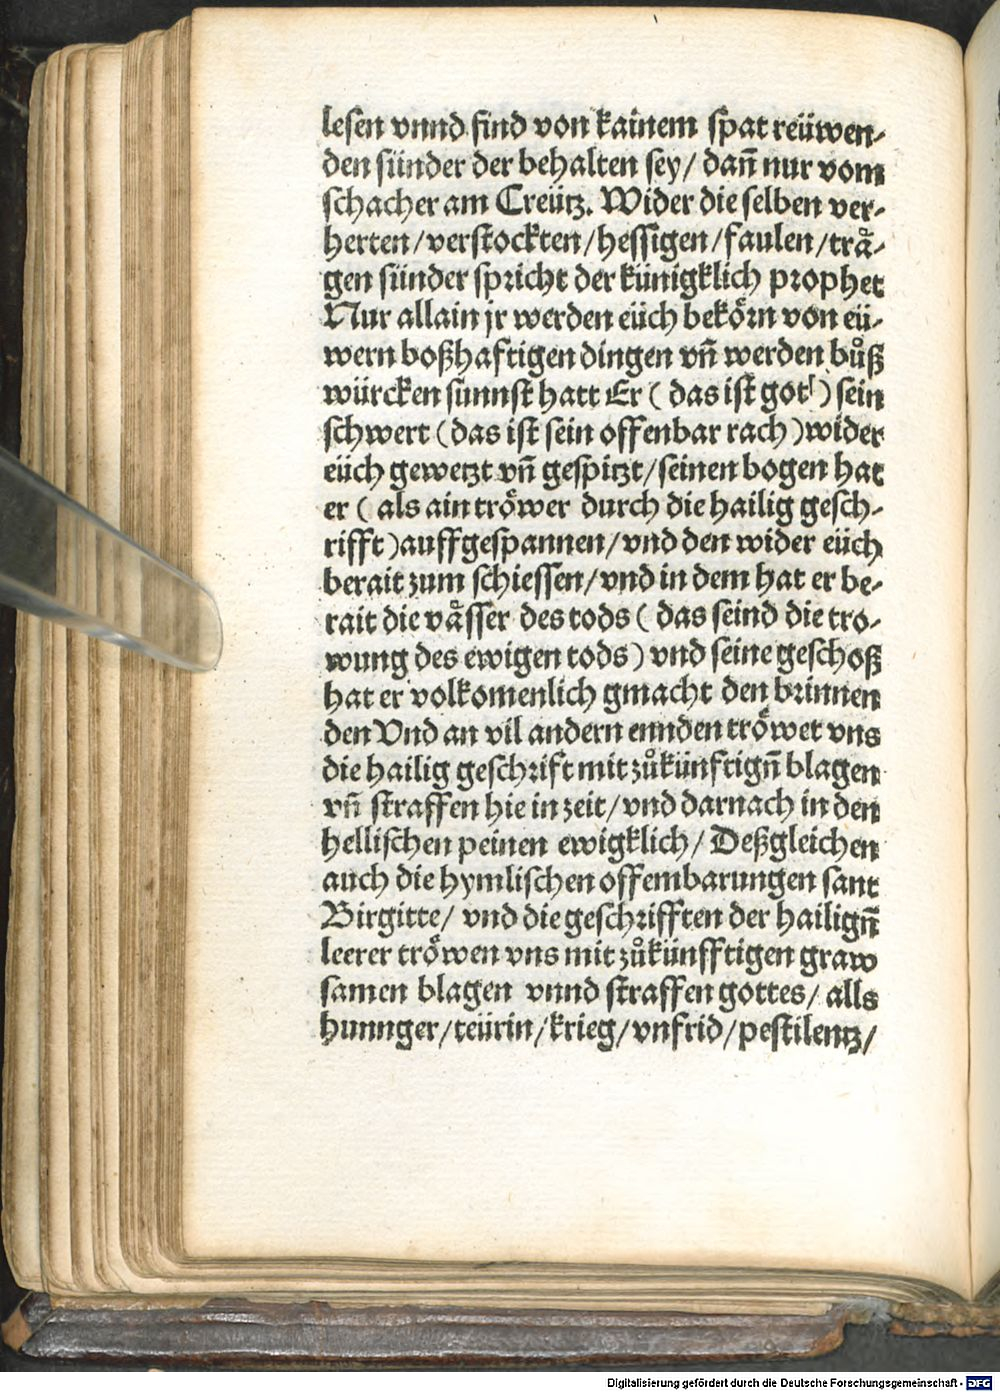 lesen vnnd find von kainem spat reüwen-
den sünder der behalten sey/ dañ nur vom
schacher am Creütz. Wider die selben ver-
herten/verstockten/hessigen/faulen/trå-
gen sünder spricht der künigklich prophet
Nur allain jr werden eüch beköꝛn von eü-
wern boßhaftigen dingen vñ werden bůß
würcken sunnst hatt Er ( das ist got ) sein
schwert (das ist sein offenbar rach )wider
eüch gewetzt vñ gespitzt/seinen bogen hat
er ( als ain tröwer durch die hailig gesch-
rifft )auffgespannen/vnd den wider eüch
berait zum schiessen/vnd in dem hat er be-
rait die våsser des tods ( das seind die tro-
wung des ewigen tods) vnd seine geschoß
hat er volkomenlich gmacht den brinnen
den Vnd an vil andern ennden tröwet vns
die hailig geschꝛift mit zůkünftigñ blagen
vñ straffen hie in zeit/vnd darnach in den
hellischen peinen ewigklich/ Deßgleichen
auch die hymlischen offembarungen sant
Birgitte/ vnd die geschꝛifften der hailigñ
leerer tröwen vns mit zůkünfftigen graw
samen blagen vnnd straffen gottes/ alls
hunnger/teürin/krieg/vnfrid/pestilentz/
Digitalisierung gefördert durch die Deutsche Forschungsgemeinschaft - DFG